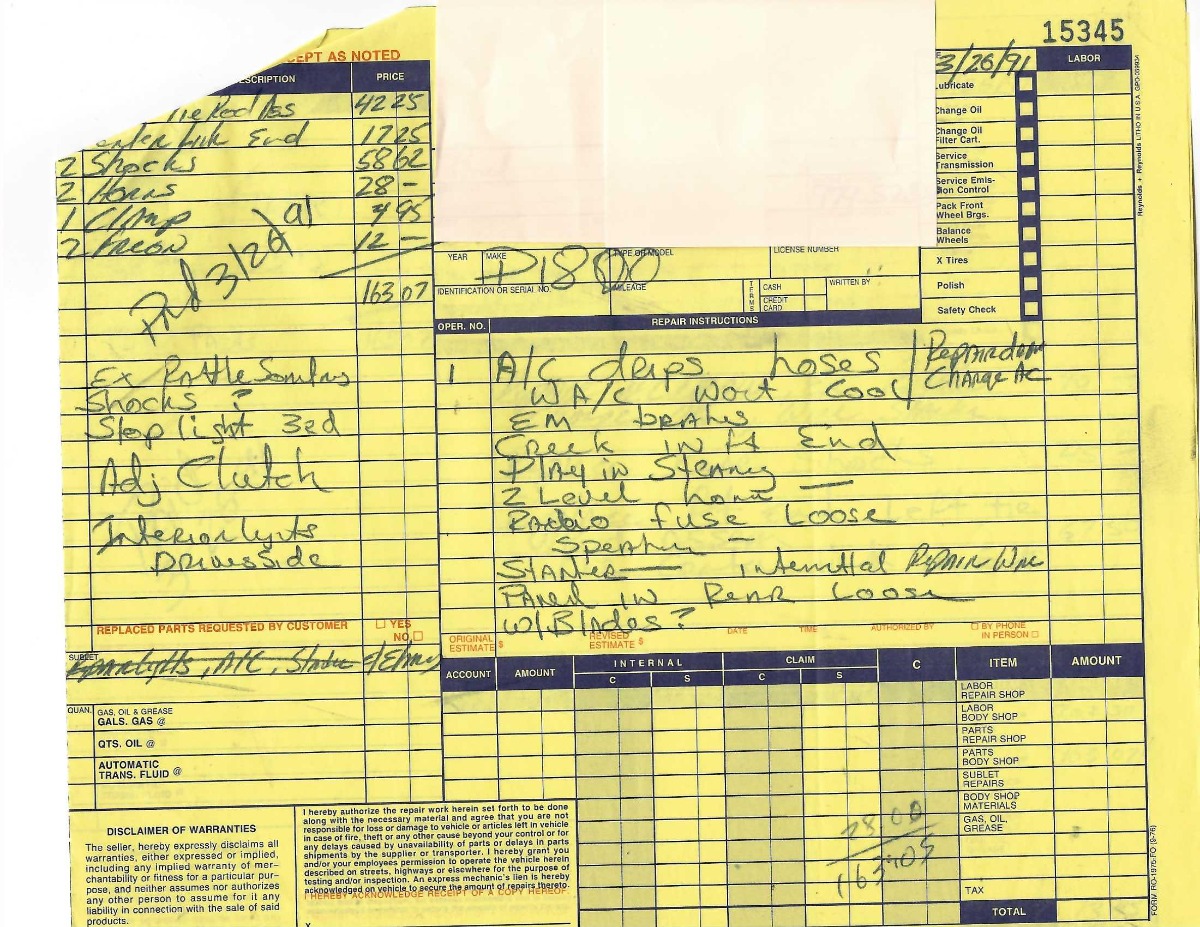 15345
EPT AS NOTED
ESCRIPTION PRICE
Tie Rod 42 25
Link End 17 25
2 Shocks 58 62
2 Horns 28 -
1 Clamp 4 95
2 Freon 12 -
Pd 3/26/91
163 07
Ex Rattle Sombus
Shocks ?
Stop light 3rd
Adj Clutch
Interior lights
Drivers side
REPLACED PARTS REQUESTED BY CUSTOMER YES
NO
SUBLET
QUAN. GAS, OIL & GREASE
GALS. GAS @
QTS. OIL @
AUTOMATIC
TRANS. FLUID @
DISCLAIMER OF WARRANTIES
The seller, hereby expressly disclaims all
warranties, either expressed or implied,
including any implied warranty of mer-
chantability or fitness for a particular pur-
pose, and neither assumes nor authorizes
any other person to assume for it any
liability in connection with the sale of said
products.
3/26/91
LABOR
Lubricate
Change Oil
Change Oil
Filter Cart.
Service
Transmission
Service Emis-
sion Control
Pack Front
Wheel Brgs.
Balance
Wheels
X Tires
Polish
Safety Check
Reynolds + Reynolds LITHO IN U.S.A.
YEAR MAKE TYPE OR MODEL LICENSE NUMBER
P1800
IDENTIFICATION OR SERIAL NO. MILEAGE TERMS CASH WRITTEN BY
CREDIT
CARD
OPER. NO. REPAIR INSTRUCTIONS
1 A/C drips hoses / Repair
W A/C Wort Cool Change AC
EM brakes
Creek in Ft End
Play in
2 Level horn
Radio fuse Loose
Speaker
Starter Repair Wire
Panel in Rear Loose
W/Blades ?
ORIGINAL
ESTIMATE $ REVISED
ESTIMATE $ DATE TIME AUTHORIZED BY BY PHONE
IN PERSON
ACCOUNT AMOUNT INTERNAL CLAIM C ITEM AMOUNT
C S C S
LABOR
REPAIR SHOP
LABOR
BODY SHOP
PARTS
REPAIR SHOP
PARTS
BODY SHOP
SUBLET
REPAIRS
BODY SHOP
MATERIALS
GAS, OIL,
GREASE
TAX
TOTAL
28.00
I hereby authorize the repair work herein set forth to be done
along with the necessary material and agree that you are not
responsible for loss or damage to vehicle or articles left in vehicle
in case of fire, theft or any other cause beyond your control or for
any delays caused by unavailability of parts or delays in parts
shipments by the supplier or transporter. I hereby grant you
and/or your employees permission to operate the vehicle herein
described on streets, highways or elsewhere for the purpose of
testing and/or inspection. An express mechanic's lien is hereby
acknowledged on vehicle to secure the amount of repairs thereto.
I HEREBY ACKNOWLEDGE RECEIPT OF A COPY HEREOF.
X
FORM RO-1975-FO (9-76)